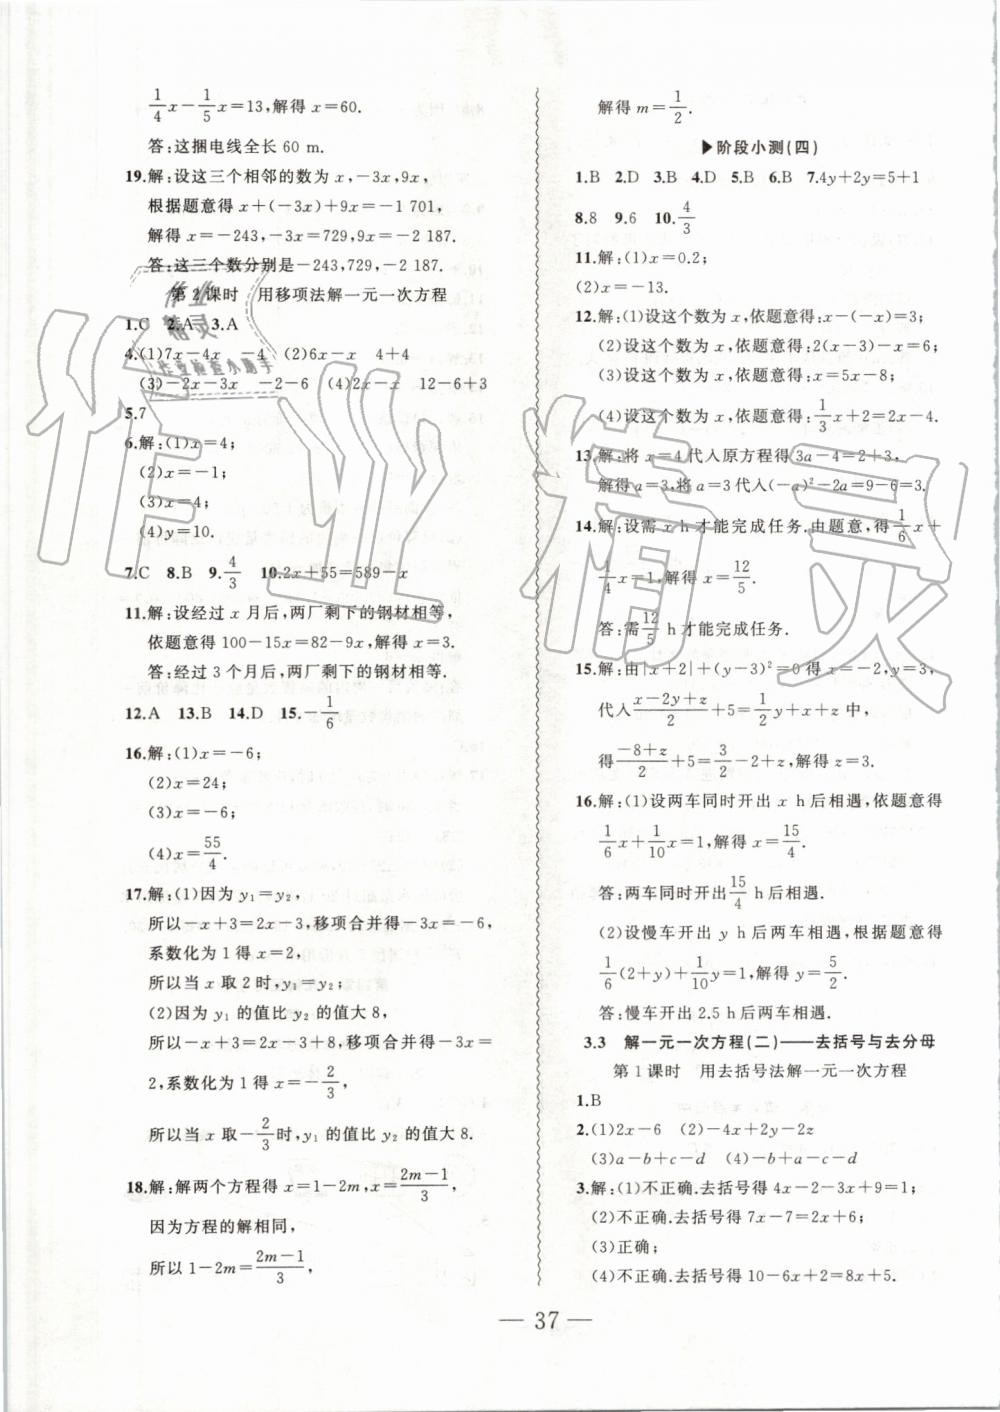 1/4x-1/5x=13,解得 x=60.
答:这捆电线全长 60 m.
19.解:设这三个相邻的数为 x,-3x,9x,
根据题意得 x+(-3x)+9x=-1 701,
解得 x=-243,-3x=729,9x=-2 187.
答:这三个数分别是-243,729,-2 187.
第 2 课时 用移项法解一元一次方程
1.C 2.A 3.A
4.(1)7x-4x -4 (2)6x-x 4+4
(3)-2x-3x -2-6 (4)2x 12-6+3
5.7
6.解:(1)x=4;
(2)x=-1;
(3)x=4;
(4)y=10.
7.C 8.B 9.4/3 10.2x+55=589-x
11.解:设经过 x 月后,两厂剩下的钢材相等,
依题意得 100-15x=82-9x,解得 x=3.
答:经过 3 个月后,两厂剩下的钢材相等.
12.A 13.B 14.D 15.-1/6
16.解:(1)x=-6;
(2)x=24;
(3)x=-6;
(4)x=55/4.
17.解:(1)因为 y₁=y₂,
所以-x+3=2x-3,移项合并得-3x=-6,
系数化为 1 得 x=2,
所以当 x 取 2 时,y₁=y₂;
(2)因为 y₁ 的值比 y₂ 的值大 8,
所以-x+3=2x-3+8,移项合并得-3x=
2,系数化为 1 得 x=-2/3,
所以当 x 取-2/3时,y₁ 的值比 y₂ 的值大 8.
18.解:解两个方程得 x=1-2m,x=(2m-1)/3,
因为方程的解相同,
所以 1-2m=(2m-1)/3,
解得 m=1/2.
▶阶段小测(四)
1.B 2.D 3.B 4.D 5.B 6.B 7.4y+2y=5+1
8.8 9.6 10.4/3
11.解:(1)x=0.2;
(2)x=-13.
12.解:(1)设这个数为 x,依题意得:x-(-x)=3;
(2)设这个数为 x,依题意得:2(x-3)-x=6;
(3)设这个数为 x,依题意得:x=5x-8;
(4)设这个数为 x,依题意得:1/3x+2=2x-4.
13.解:将 x=4 代入原方程得 3a-4=2+3,
解得 a=3,将 a=3 代入(-a)²-2a=9-6=3.
14.解:设需 x h 才能完成任务.由题意,得1/6x+
1/4x=1,解得 x=12/5.
答:需12/5 h 才能完成任务.
15.解:由|x+2|+(y-3)²=0 得 x=-2,y=3,
代入(x-2y+z)/2+5=1/2y+x+z 中,
得(-8+z)/2+5=3/2-2+z,解得 z=3.
16.解:(1)设两车同时开出 x h 后相遇,依题意得
1/6x+1/10x=1,解得 x=15/4.
答:两车同时开出15/4 h 后相遇.
(2)设慢车开出 y h 后两车相遇,根据题意得
1/6(2+y)+1/10y=1,解得 y=5/2.
答:慢车开出 2.5 h 后两车相遇.
3.3 解一元一次方程(二)——去括号与去分母
第 1 课时 用去括号法解一元一次方程
1.B
2.(1)2x-6 (2)-4x+2y-2z
(3)a-b+c-d (4)-b+a-c-d
3.解:(1)不正确.去括号得 4x-2-3x+9=1;
(2)不正确.去括号得 7x-7=2x+6;
(3)正确;
(4)不正确.去括号得 10-6x+2=8x+5.
— 37 —
作业精灵
作业
精灵
作业检查小助手